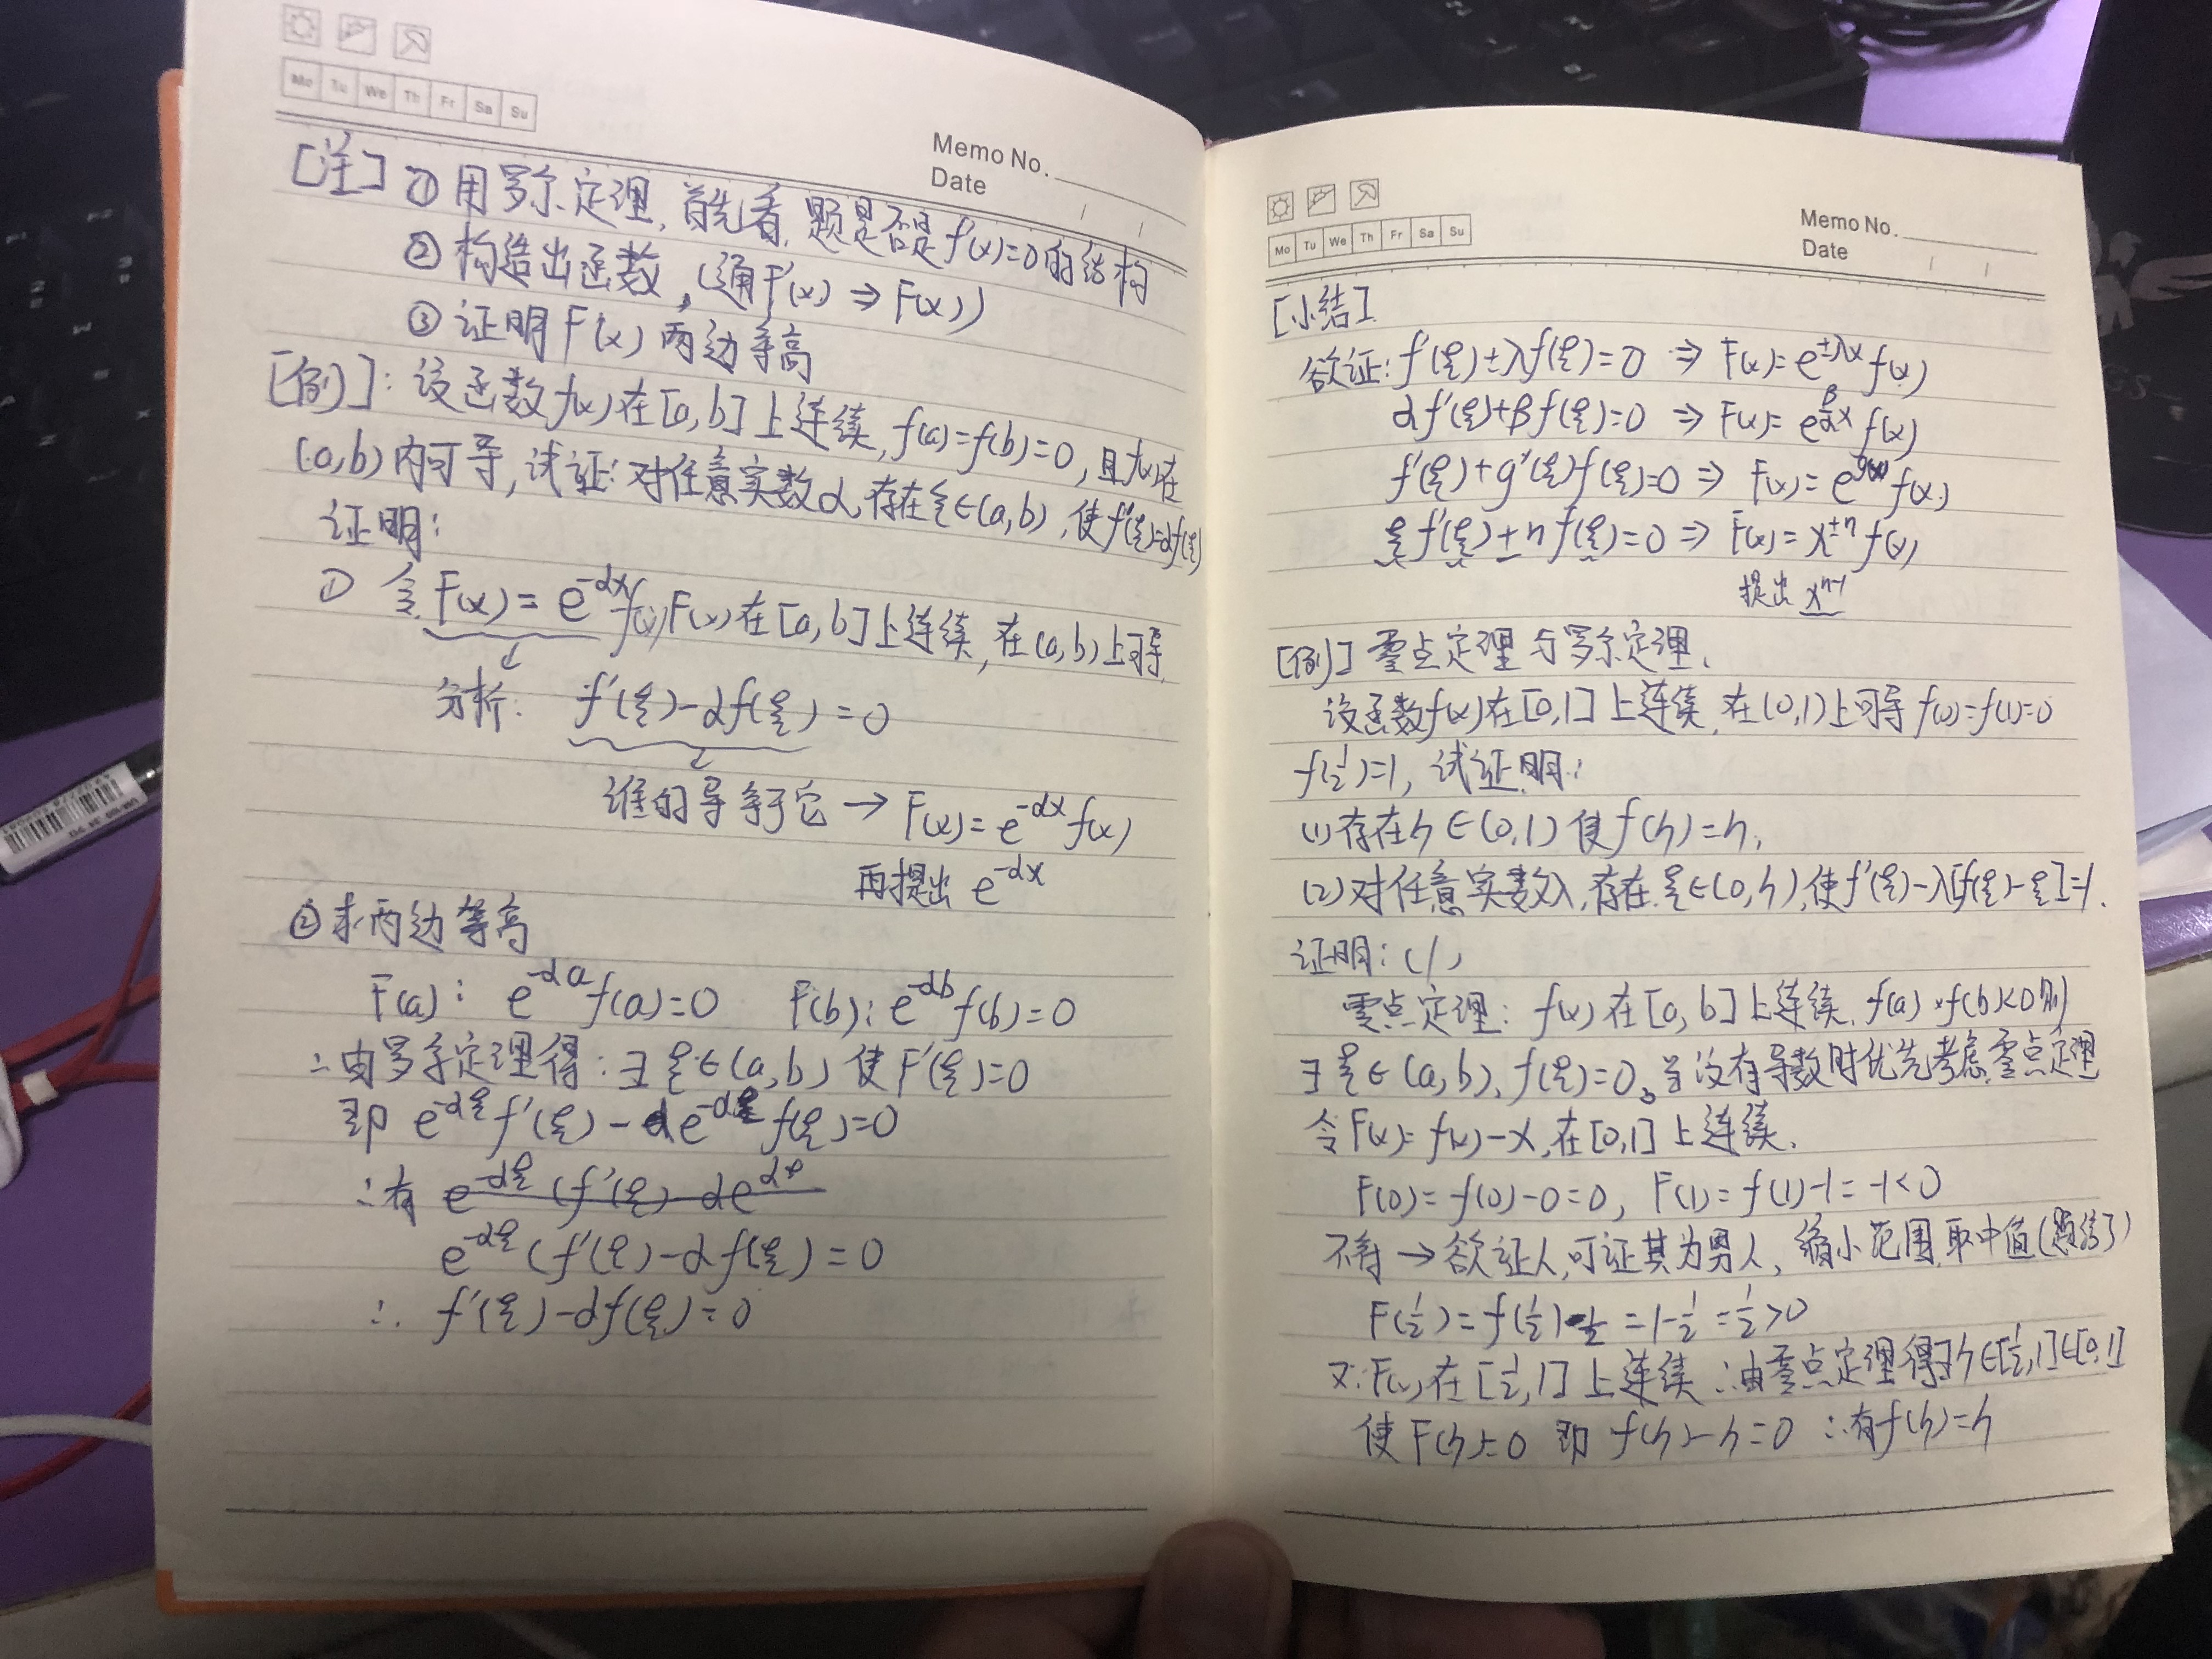 Mo Tu We Th Fr Sa Su
Memo No.
Date / /
[注] ① 用罗尔定理,首先看,题是否是f'(x)=0的结构
② 构造出函数,(通F'(x) ⇒ F(x))
③ 证明F(x)两边等高
[例]: 设函数f(x)在[a,b]上连续,f(a)=f(b)=0,且f(x)在
(a,b)内可导,试证:对任意实数α,存在ξ∈(a,b),使f'(ξ)=αf(ξ)
证明:
① 令F(x)=e^{-αx}f(x),F(x)在[a,b]上连续,在(a,b)上可导
分析: f'(ξ)-αf(ξ)=0
谁的导等于它 → F(x)=e^{-αx}f(x)
再提出 e^{-αx}
② 求两边等高
F(a): e^{-αa}f(a)=0 F(b): e^{-αb}f(b)=0
∴由罗尔定理得:∃ξ∈(a,b) 使F'(ξ)=0
即 e^{-αξ}f'(ξ)-αe^{-αξ}f(ξ)=0
∴有 e^{-αξ}(f'(ξ)-αe^{αξ}
e^{-αξ}(f'(ξ)-αf(ξ)=0
∴ f'(ξ)-αf(ξ)=0
Mo Tu We Th Fr Sa Su
Memo No.
Date / /
[小结]
欲证: f'(ξ)±λf(ξ)=0 ⇒ F(x)=e^{±λx}f(x)
αf'(ξ)+βf(ξ)=0 ⇒ F(x)=e^{\frac{β}{α}x}f(x)
f'(ξ)+g'(ξ)f(ξ)=0 ⇒ F(x)=e^{g(x)}f(x)
ξf'(ξ)±nf(ξ)=0 ⇒ F(x)=x^{±n}f(x)
提出 x^{n-1}
[例] 零点定理与罗尔定理.
设函数f(x)在[0,1]上连续,在(0,1)上可导 f(0)=f(1)=0
f(½)=1, 试证明:
(1)存在η∈(0,1)使f(η)=η,
(2)对任意实数λ,存在ξ∈(0,η),使f'(ξ)-λ[f(ξ)-ξ]=1.
证明:(1)
零点定理: f(x)在[a,b]上连续,f(a)×f(b)<0则
∃ξ∈(a,b),f(ξ)=0。当没有导数时优先考虑零点定理
令F(x)=f(x)-x,在[0,1]上连续.
F(0)=f(0)-0=0, F(1)=f(1)-1=-1<0
不符 → 欲证人,可证其为男人, 缩小范围,取中值(题给了)
F(½)=f(½)-½=1-½=½>0
又∵F(x)在[½,1]上连续 ∴由零点定理得∃η∈[½,1]∈[0,1]
使F(η)=0 即 f(η)-η=0 ∴有f(η)=η